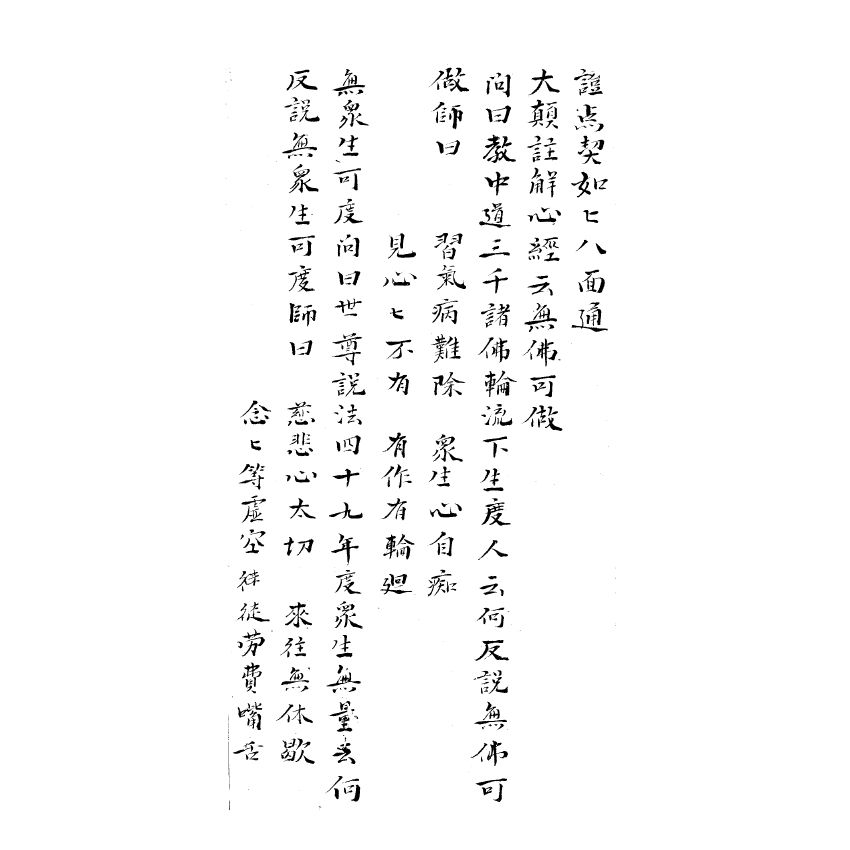 誰烹契如匕八面通
大顛註解心經云無佛可做
问曰教中道三千諸佛輪流下生度人云何反説無佛可
做師曰　習氣病難除　衆生心自痴
見心匕不有　有作有輪廻
無衆生可度问曰世尊説法四十九年度衆生無量云何
反説無衆生可度師曰　慈悲心太切　來往無休歇
念匕等虛空　徒劳費嘴舌